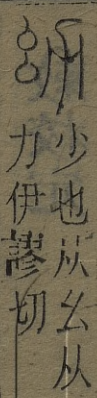 幼
少也从幺从
力伊謬切